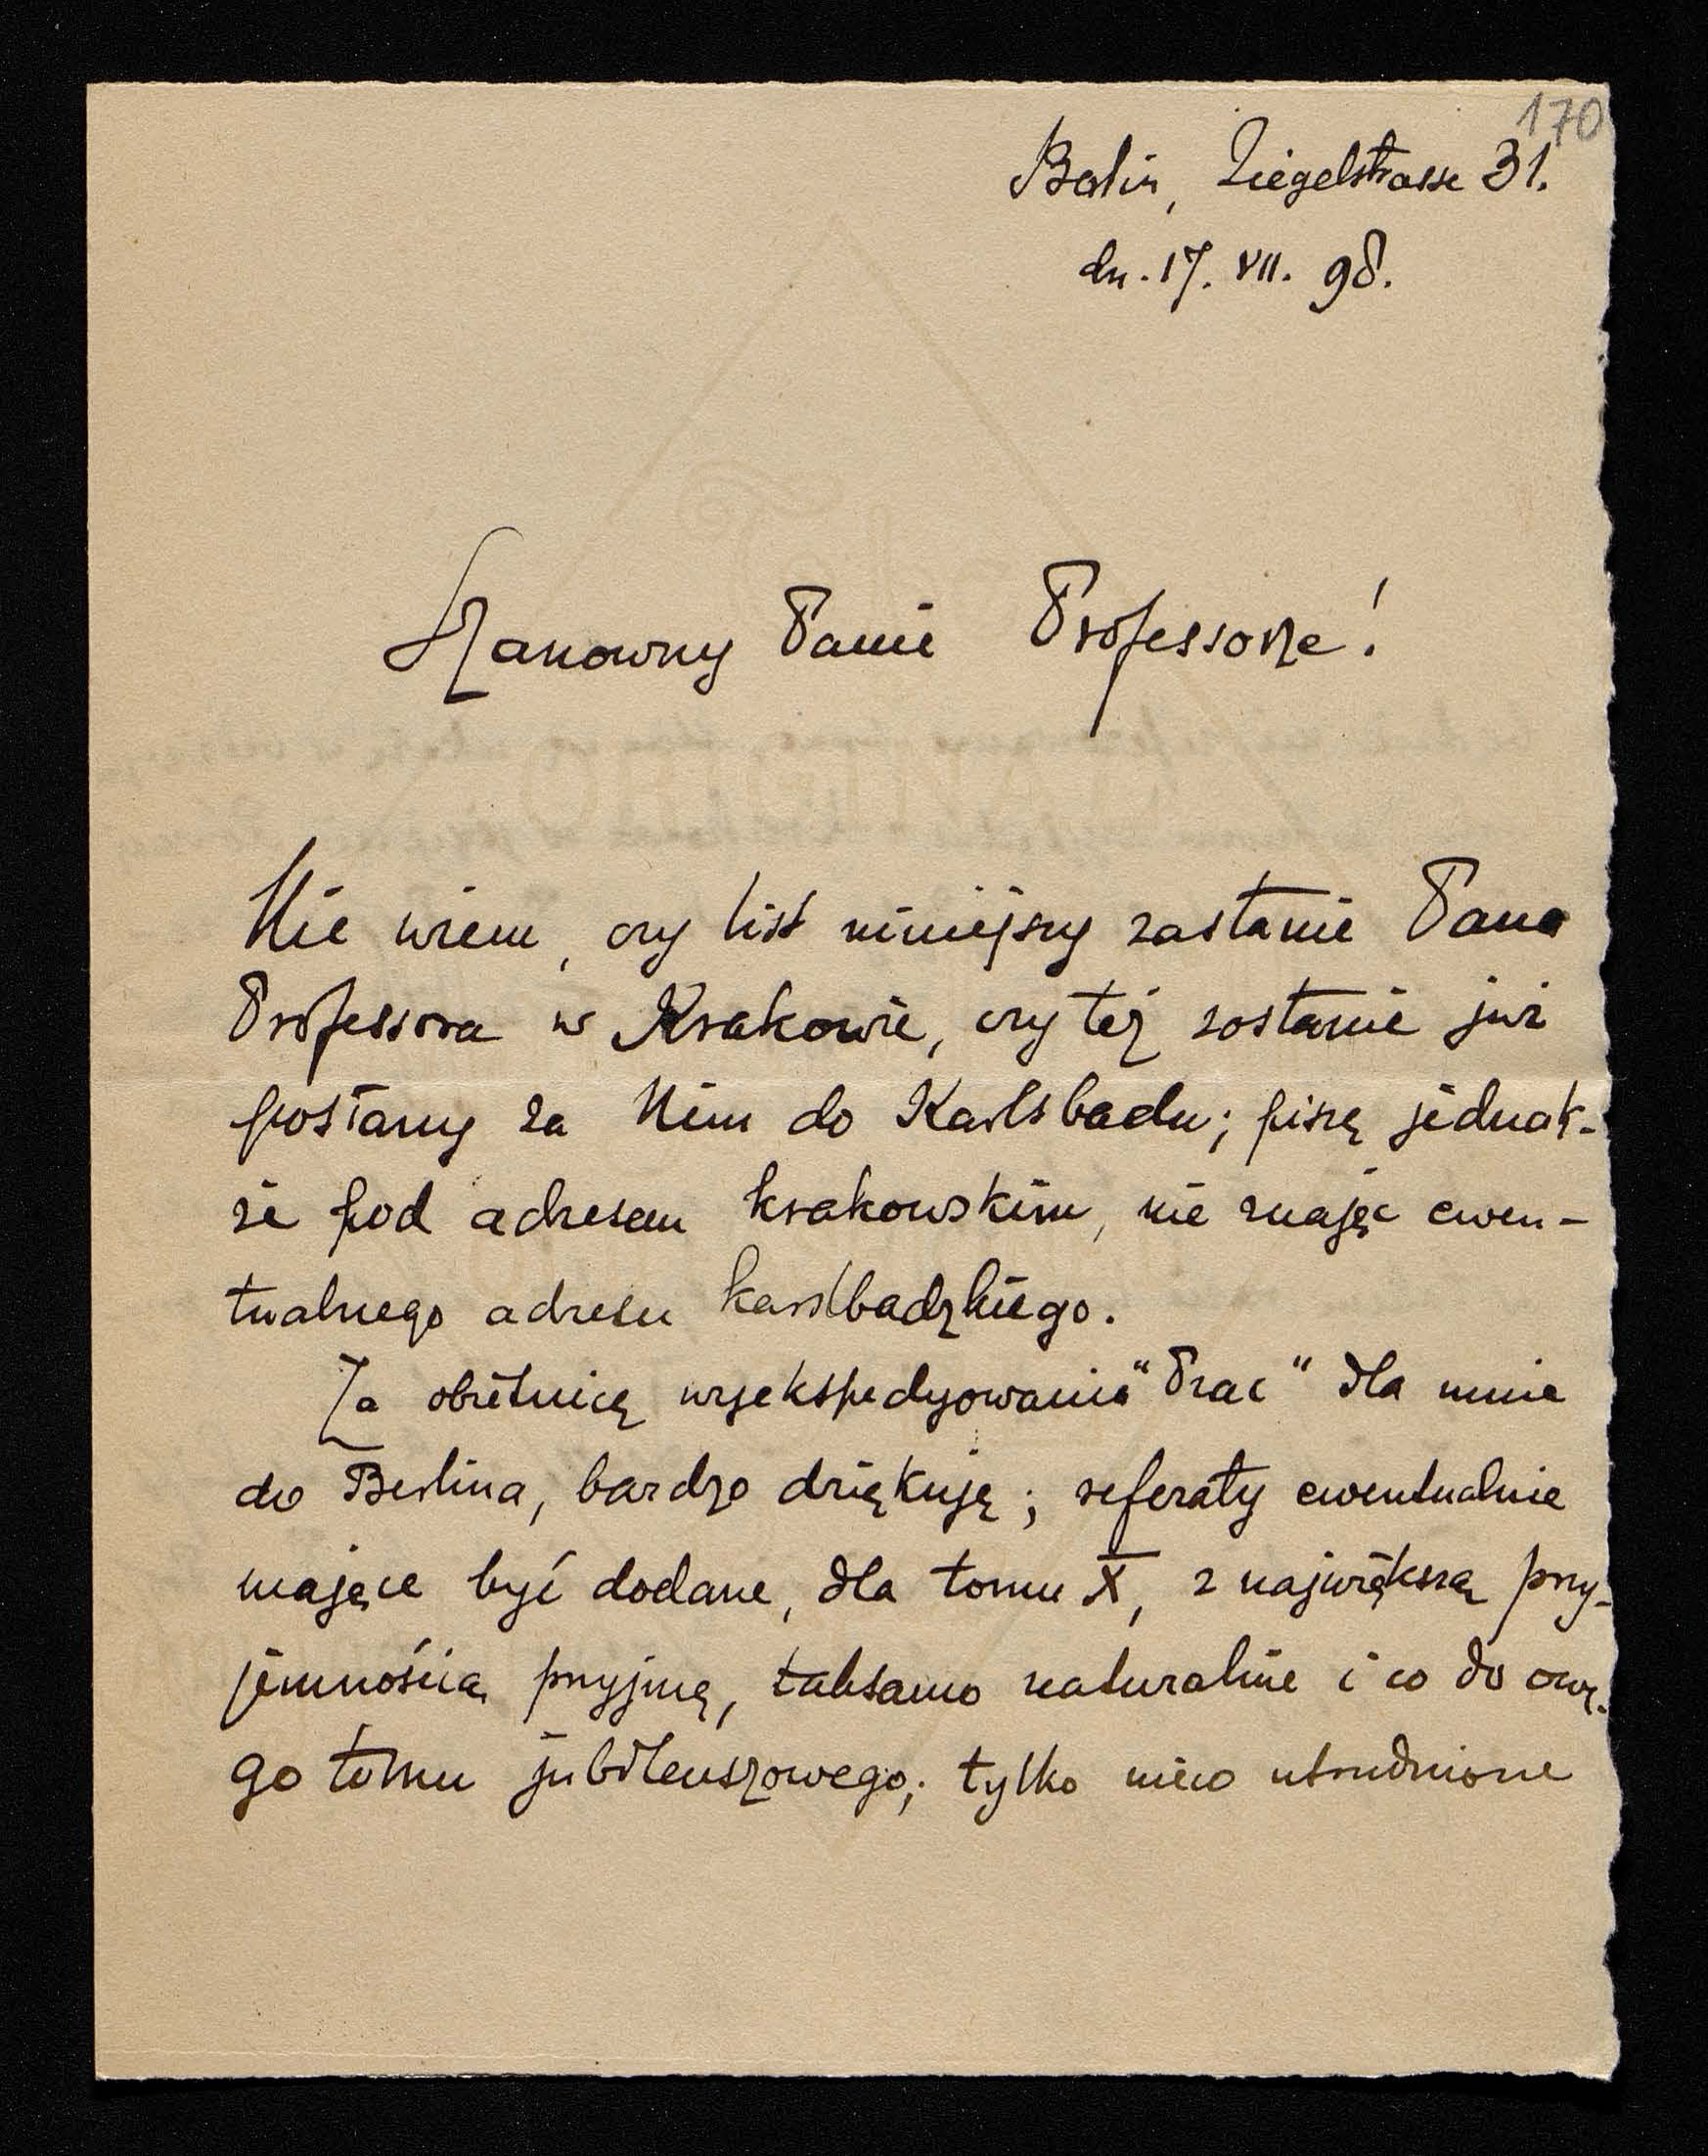 170
Berlin, Ziegelstrasse 31.
dn. 17. VII. 98.
Szanowny Panie Professorze!
Nie wiem, czy list niniejszy zastanie Pana
Professora w Krakowie, czy też zostanie już
posłany za Nim do Karlsbadu; piszę jednak-
że pod adresem krakowskim, nie znając ewen-
tualnego adresu karlsbadzkiego.
Za obietnicę wyekspedyowania "Prac" dla mnie
do Berlina, bardzo dziękuję; referaty ewentualnie
mające być dodane, dla tomu X, z największą przy-
jemnością przyjmę, taksamo naturalnie i co do owe-
go tomu jubileuszowego; tylko nieco utrudnione